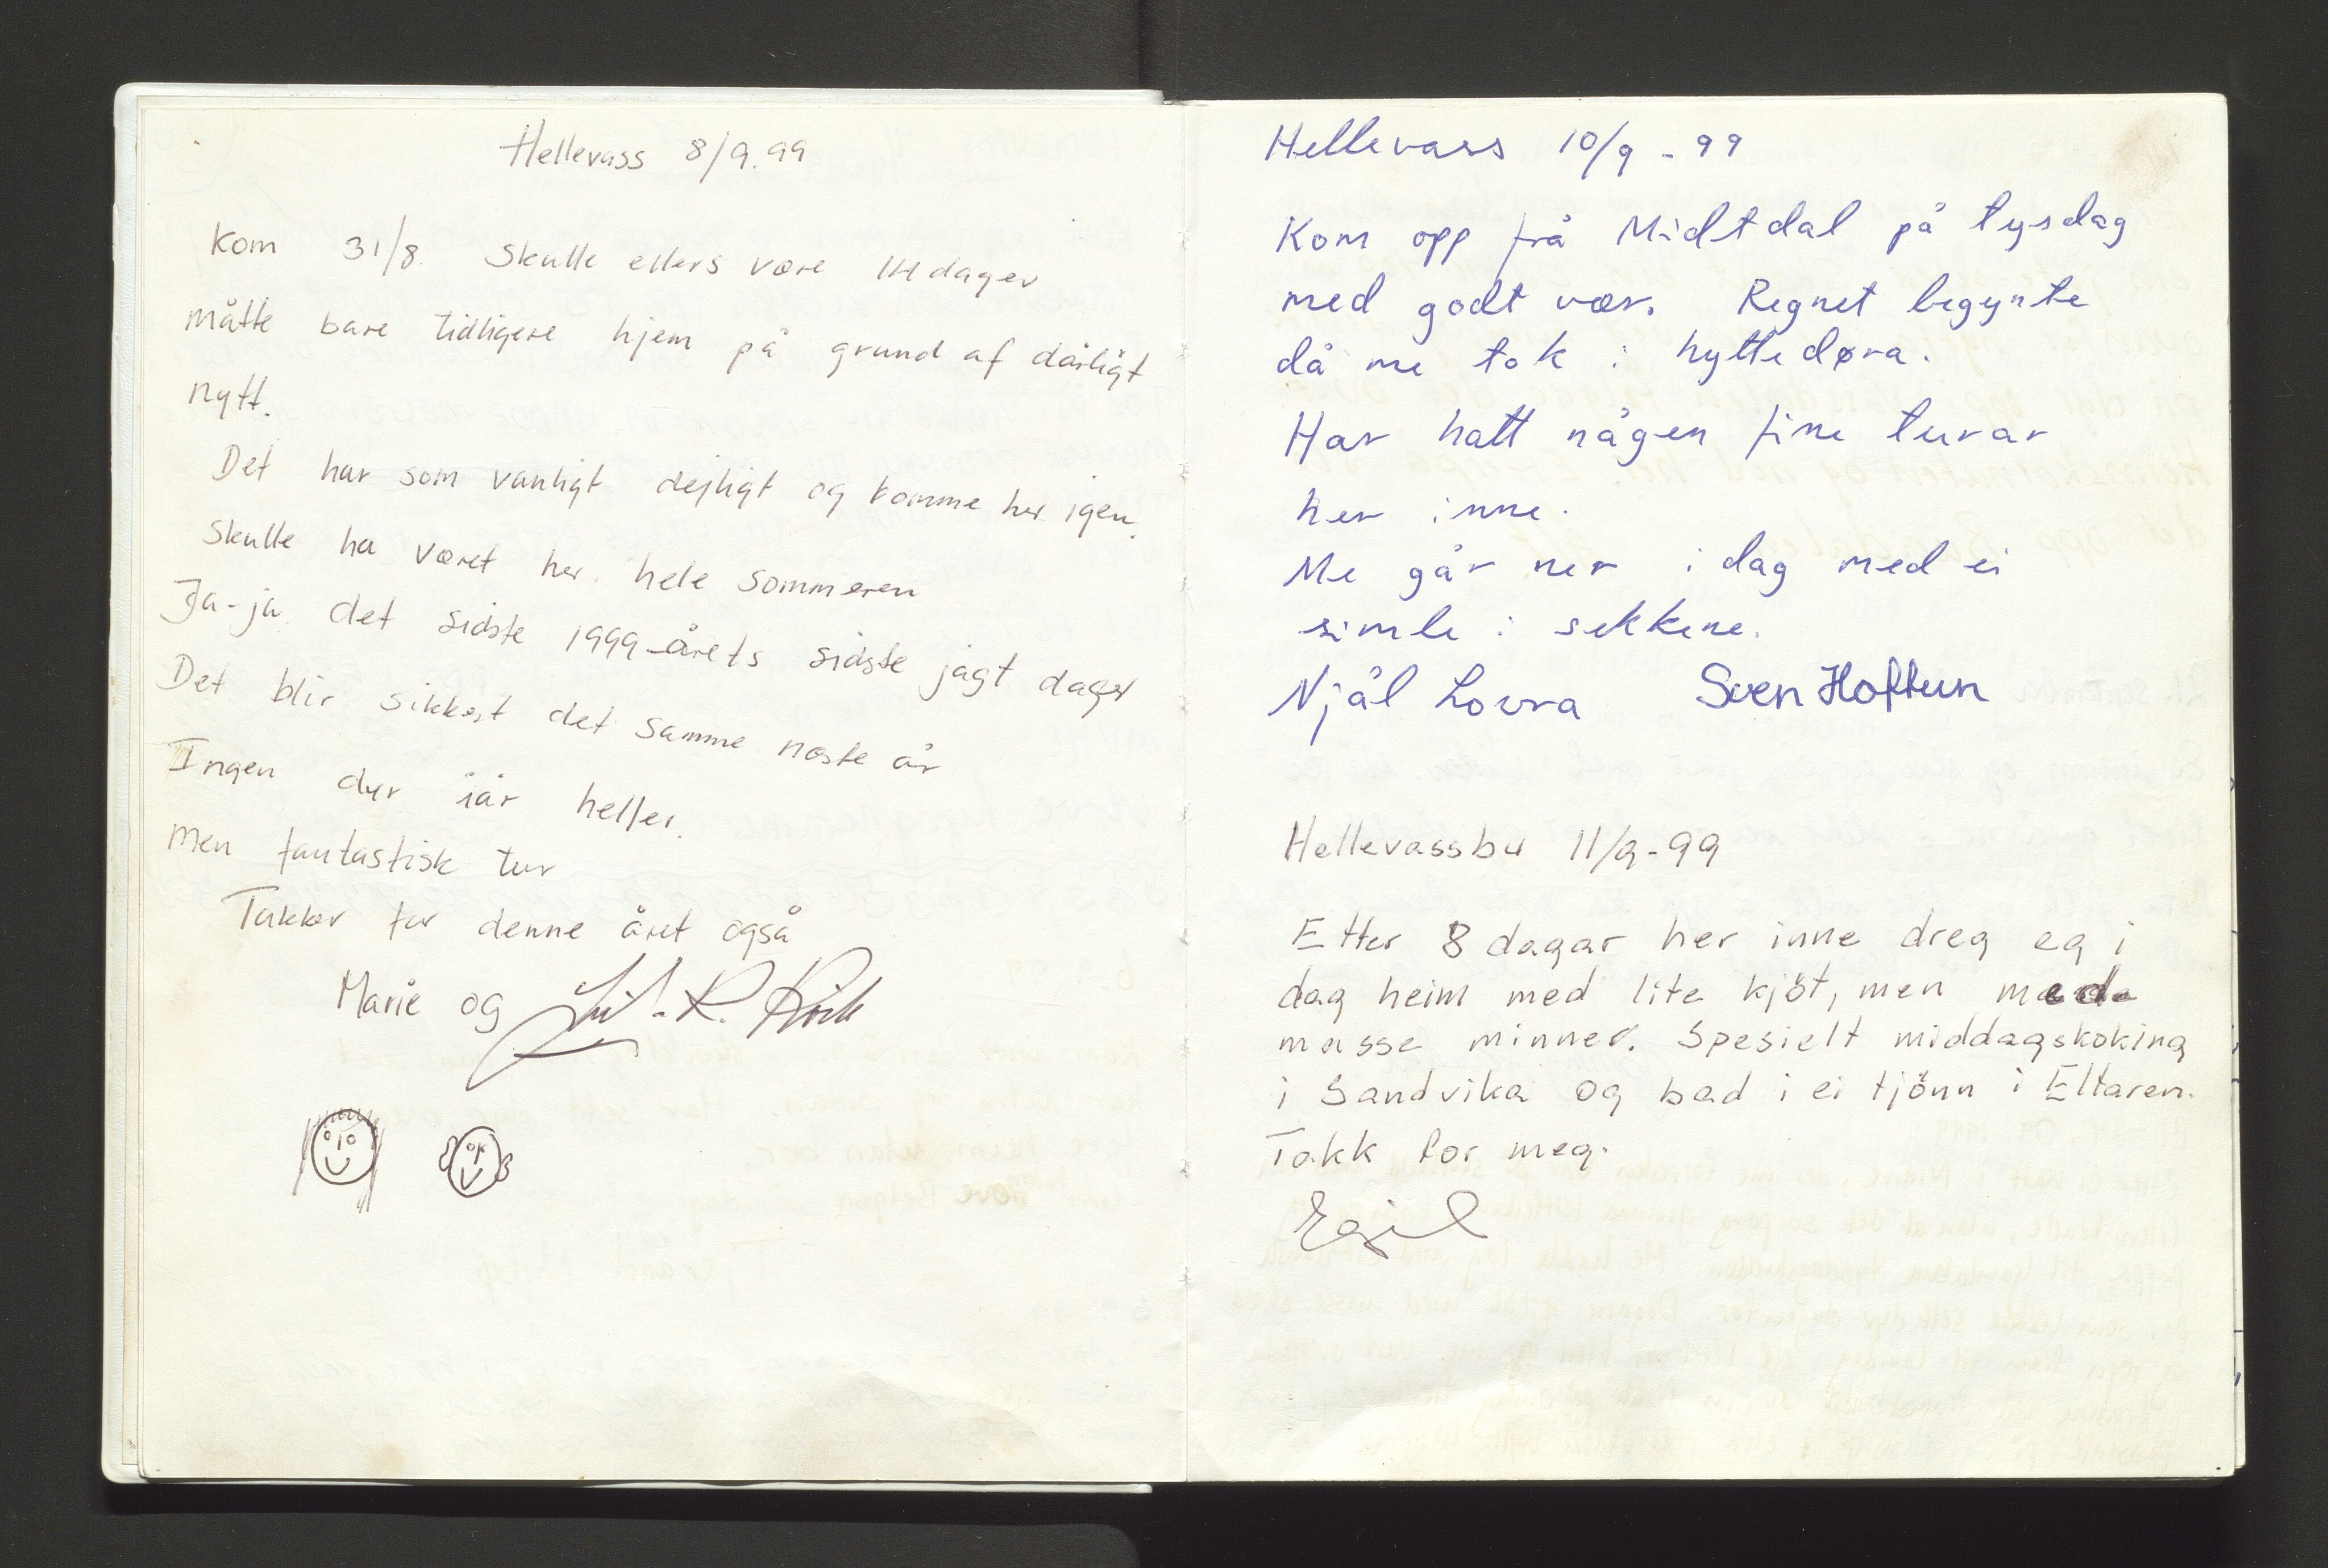 Hellevass 8/9.99
Kom 31/8. Skulle ellers være 14 dager
måtte bare tidligere hjem på grund af dårligt
nytt.
Det har som vanligt dejligt og komme her igen.
Skulle ha været her hele sommeren
Ja-ja det sidste 1999-årets sidste jagt dager
Det blir sikkert det samme næste år
Ingen dyr iår heller.
Men fantastisk tur
Takker for denne året også
Marie og
Hellevass 10/9-99
Kom opp frå Midtdal på tysdag
med godt vær. Regnet begynte
då me tok i hyttedøra.
Har hatt någen fine turar
her inne.
Me går ner i dag med ei
simle i sekkene.
Njål Lovra Sven Hoftun
Hellevassbu 11/9-99
Etter 8 dagar her inne dreg eg i
dag heim med lite kjöt, men med
masse minner. Spesielt middagskoking
i Sandvika og bad i ei tjönn i Eltaren.
Takk for meg.
Egil